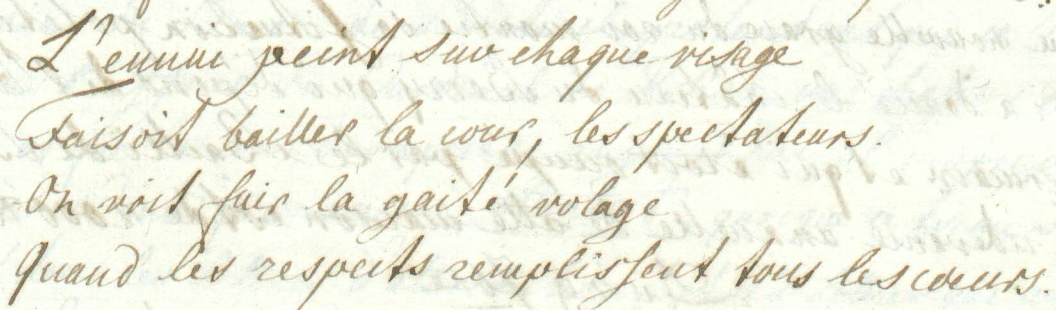 L'ennui peint sur chaque visage
Faisoit bailler la cour, les spectateurs.
On voit fuir la gaité volage
Quand les respects remplissent tous les cœurs.